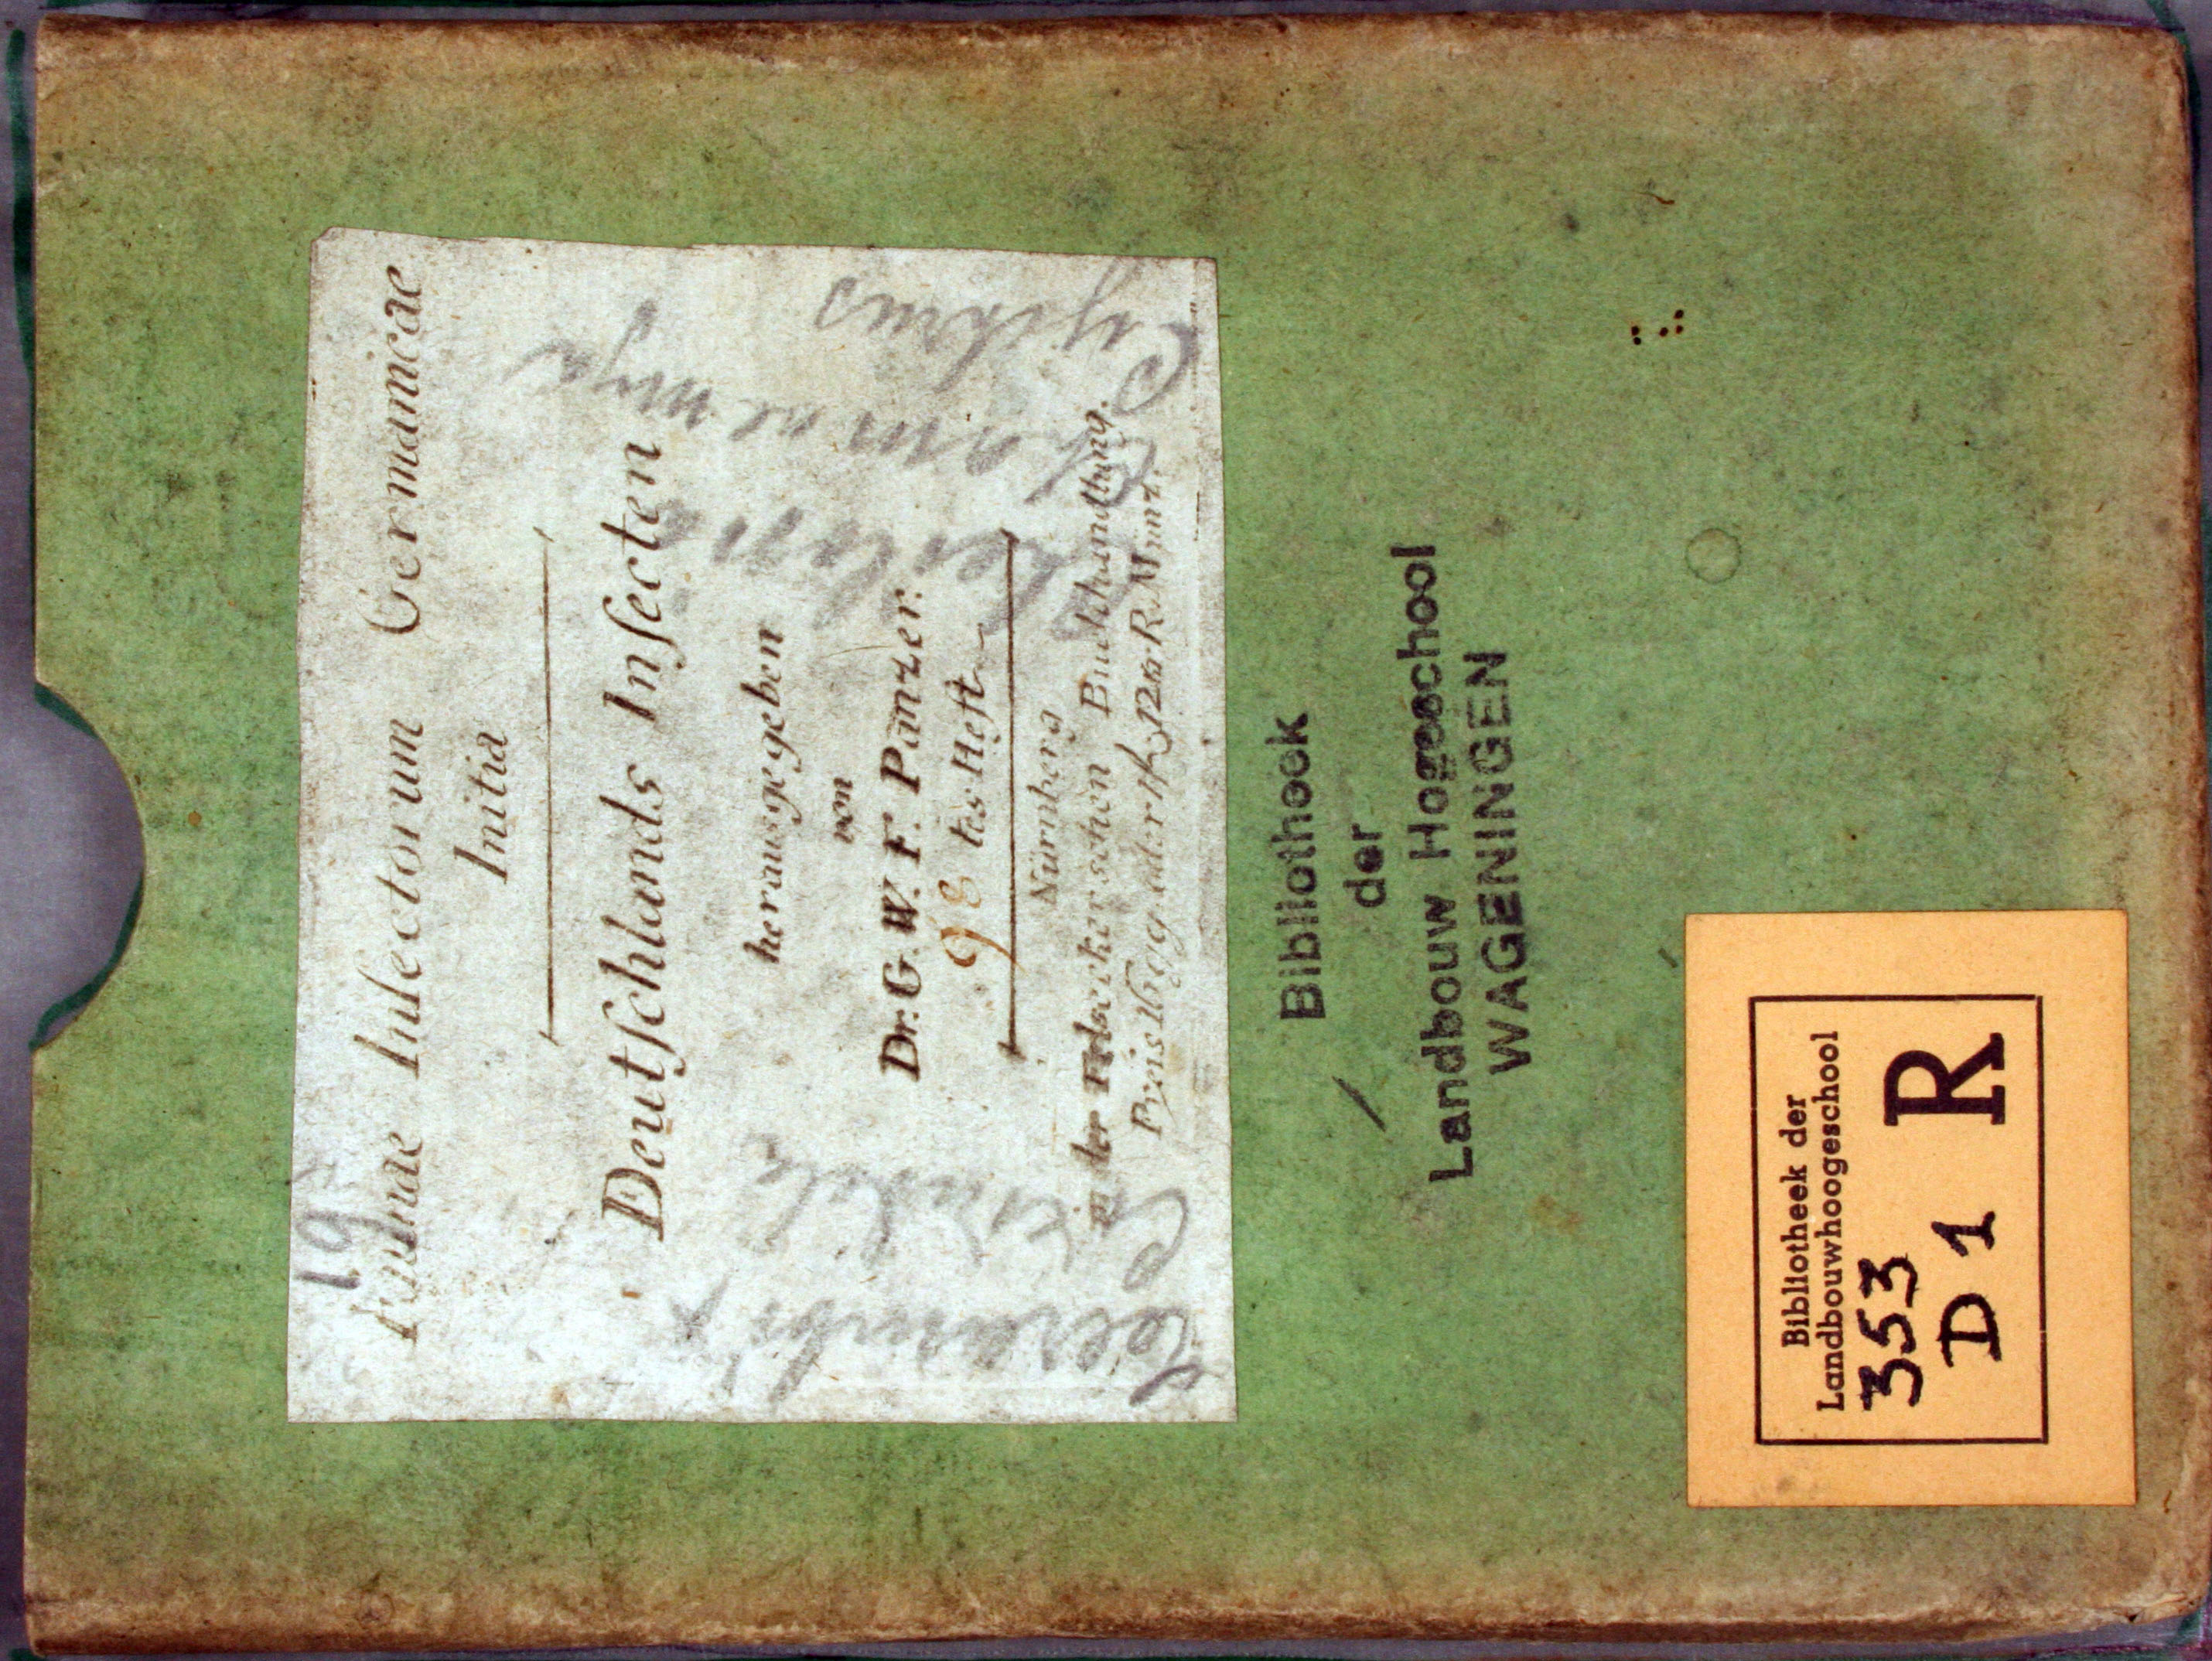 19
Faunae Insectorum Germanicae
Initia
Deutſchlands Inſecten
herausgegeben
von
Dr. G. W. F. Panzer.
98 tes Heft
Nürnberg
in der Felseckerschen Buchhandlung.
Cerambix
Bibliotheek
der
Landbouw Hogeschool
WAGENINGEN
Bibliotheek der
Landbouwhoogeschool
353
D 1 R